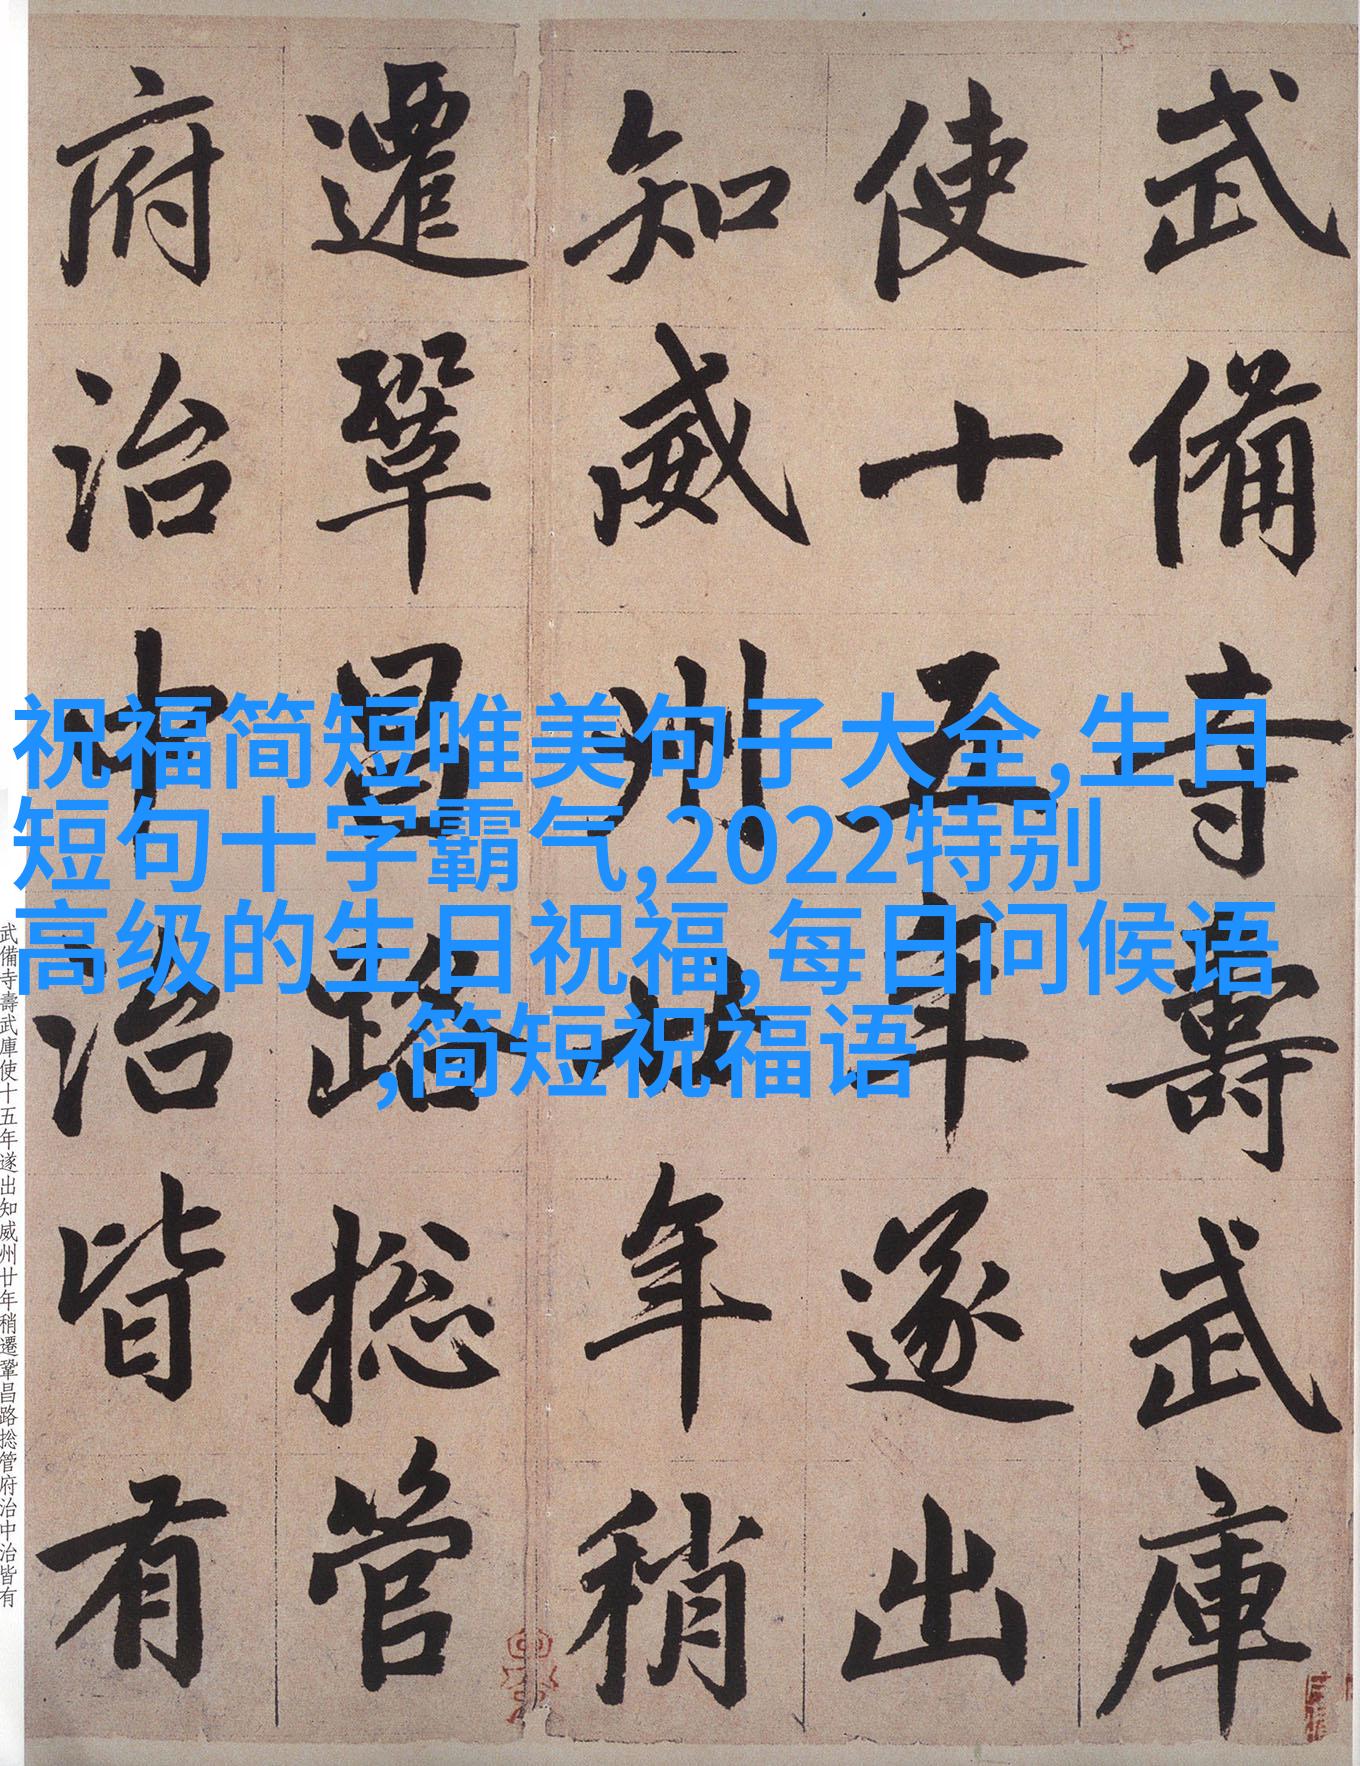 武備寺壽武庫
使十五年遂出
知威州廿年稍
遷鞏昌路捴管
府治中治皆有
祝福简短唯美句子大全,生日
短句十字霸气,2022特别
高级的生日祝福,每日问候语
,简短祝福语
武備寺壽武庫使十五年遂出知威州廿年稍遷鞏昌路捴管府治中治皆有